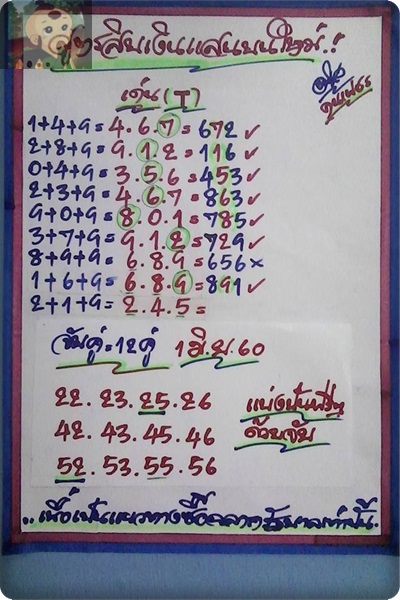 สูตรสิบเงินแสนบนใหม่.!
เด่น (T)
1+4+9= 4.6.7= 672 ✓
2+8+9= 9.1.2= 116 ✓
0+4+9= 3.5.6= 453 ✓
2+3+9= 4.6.7= 863 ✓
9+0+9= 8.0.1= 785 ✓
3+7+9= 9.1.2= 729 ✓
8+9+9= 6.8.9= 656 ×
1+6+9= 6.8.9= 891 ✓
2+1+9= 2.4.5=
จับคู่=12คู่ 1 มิ.ย. 60
22. 23. 25. 26
42. 43. 45. 46
52. 53. 55. 56
แบ่งปันฟรีๆ
ด้วยจับ
..เพื่อเป็นแนวทางซื้อสลากรัฐบาลเท่านั้น.